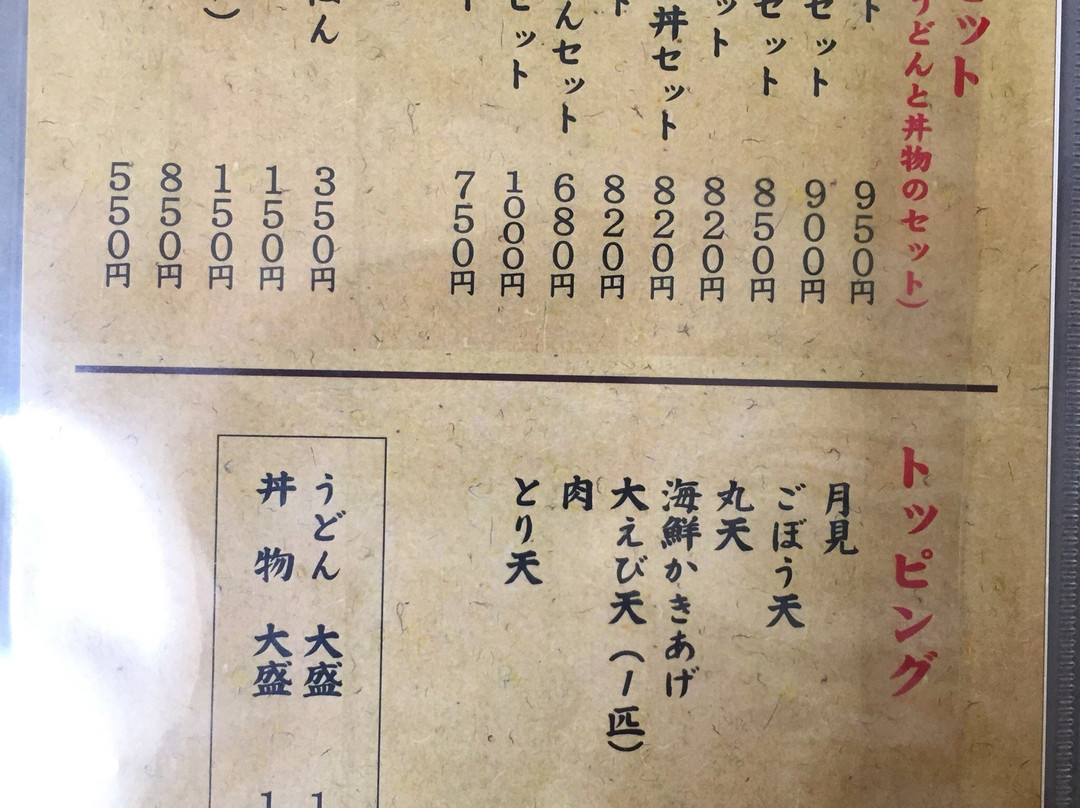 ット
うどんと丼物のセット)
ト 950円
セット 900円
セット 850円
ット 820円
丼セット 820円
ト 820円
んセット 680円
セット 1000円
ト 750円
ん 350円
150円
) 150円
850円
550円
トッピング
月見
ごぼう天
丸天
海鮮かきあげ
大えび天(1匹)
肉
とり天
うどん 大盛 1
丼物 大盛 1